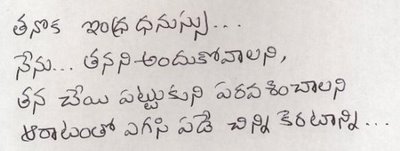 తనొక ఇంద్రధనుస్సు...
నేను... తనని అందుకోవాలని,
తన చేయి పట్టుకుని పరవశించాలని
ఆరాటంతో ఎగసి పడే చిన్ని కెరటాన్ని...